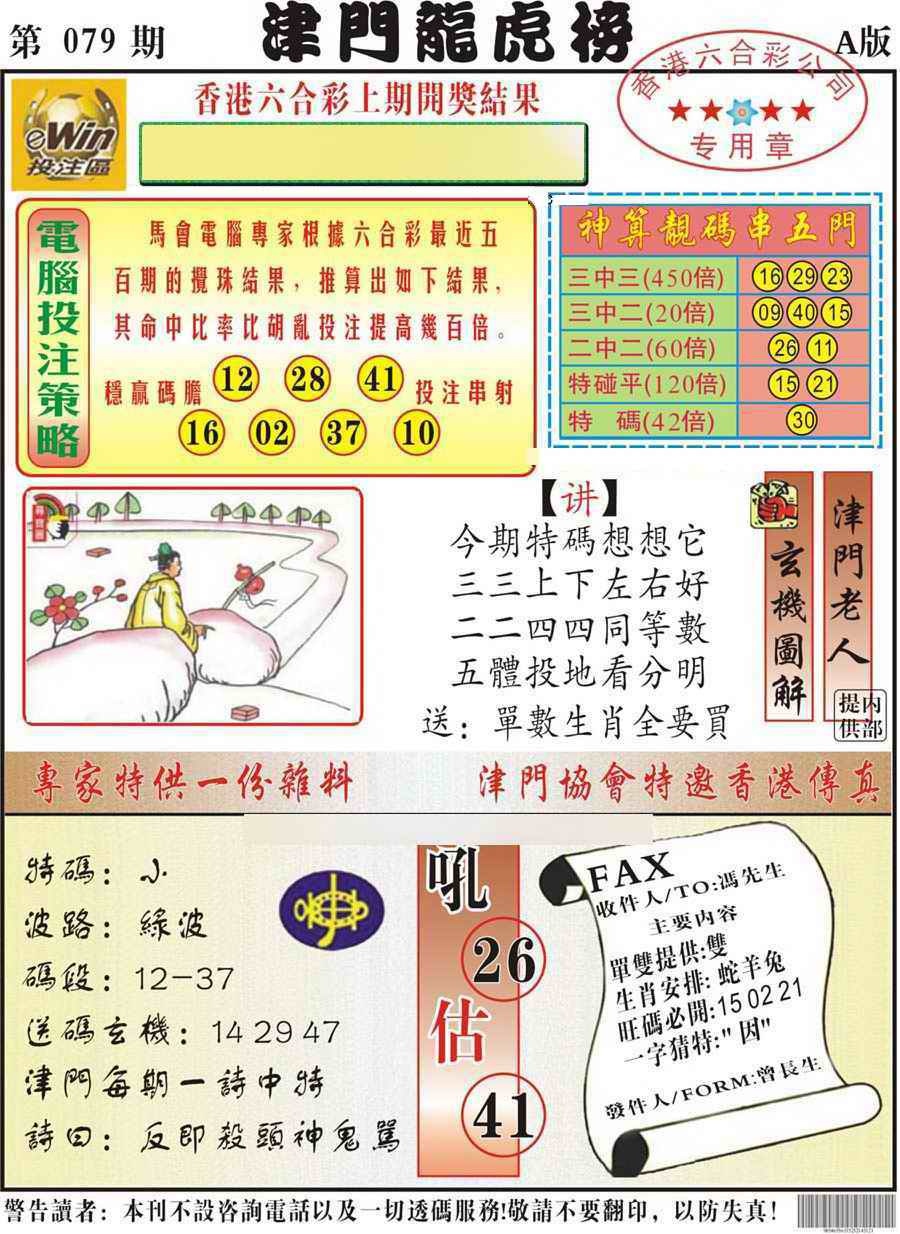 第 079 期
津門龍虎榜
A版
香港六合彩上期開獎結果
香港六合彩公司
专用章
eWin
投注區
電腦投注策略
馬會電腦專家根據六合彩最近五
百期的攪珠結果，推算出如下結果，
其命中比率比胡亂投注提高幾百倍。
穩贏碼膽 12 28 41 投注串射
16 02 37 10
神算靚碼串五門
三中三(450倍) 16 29 23
三中二(20倍) 09 40 15
二中二(60倍) 26 11
特碰平(120倍) 15 21
特 碼(42倍) 30
【讲】
今期特碼想想它
三三上下左右好
二二四四同等數
五體投地看分明
送：單數生肖全要買
玄機圖解
津門老人
内部提供
專家特供一份雜料
津門協會特邀香港傳真
特碼：小
波路：綠波
碼段：12-37
送碼玄機：14 29 47
津門每期一詩中特
詩曰：反即殺頭神鬼罵
吼
26
估
41
FAX
收件人/TO:馮先生
主要内容
單雙提供:雙
生肖安排: 蛇羊兔
旺碼必開:15 02 21
一字猜特:"因"
發件人/FORM:曾長生
警告讀者：本刊不設咨詢電話以及一切透碼服務!敬請不要翻印，以防失真!